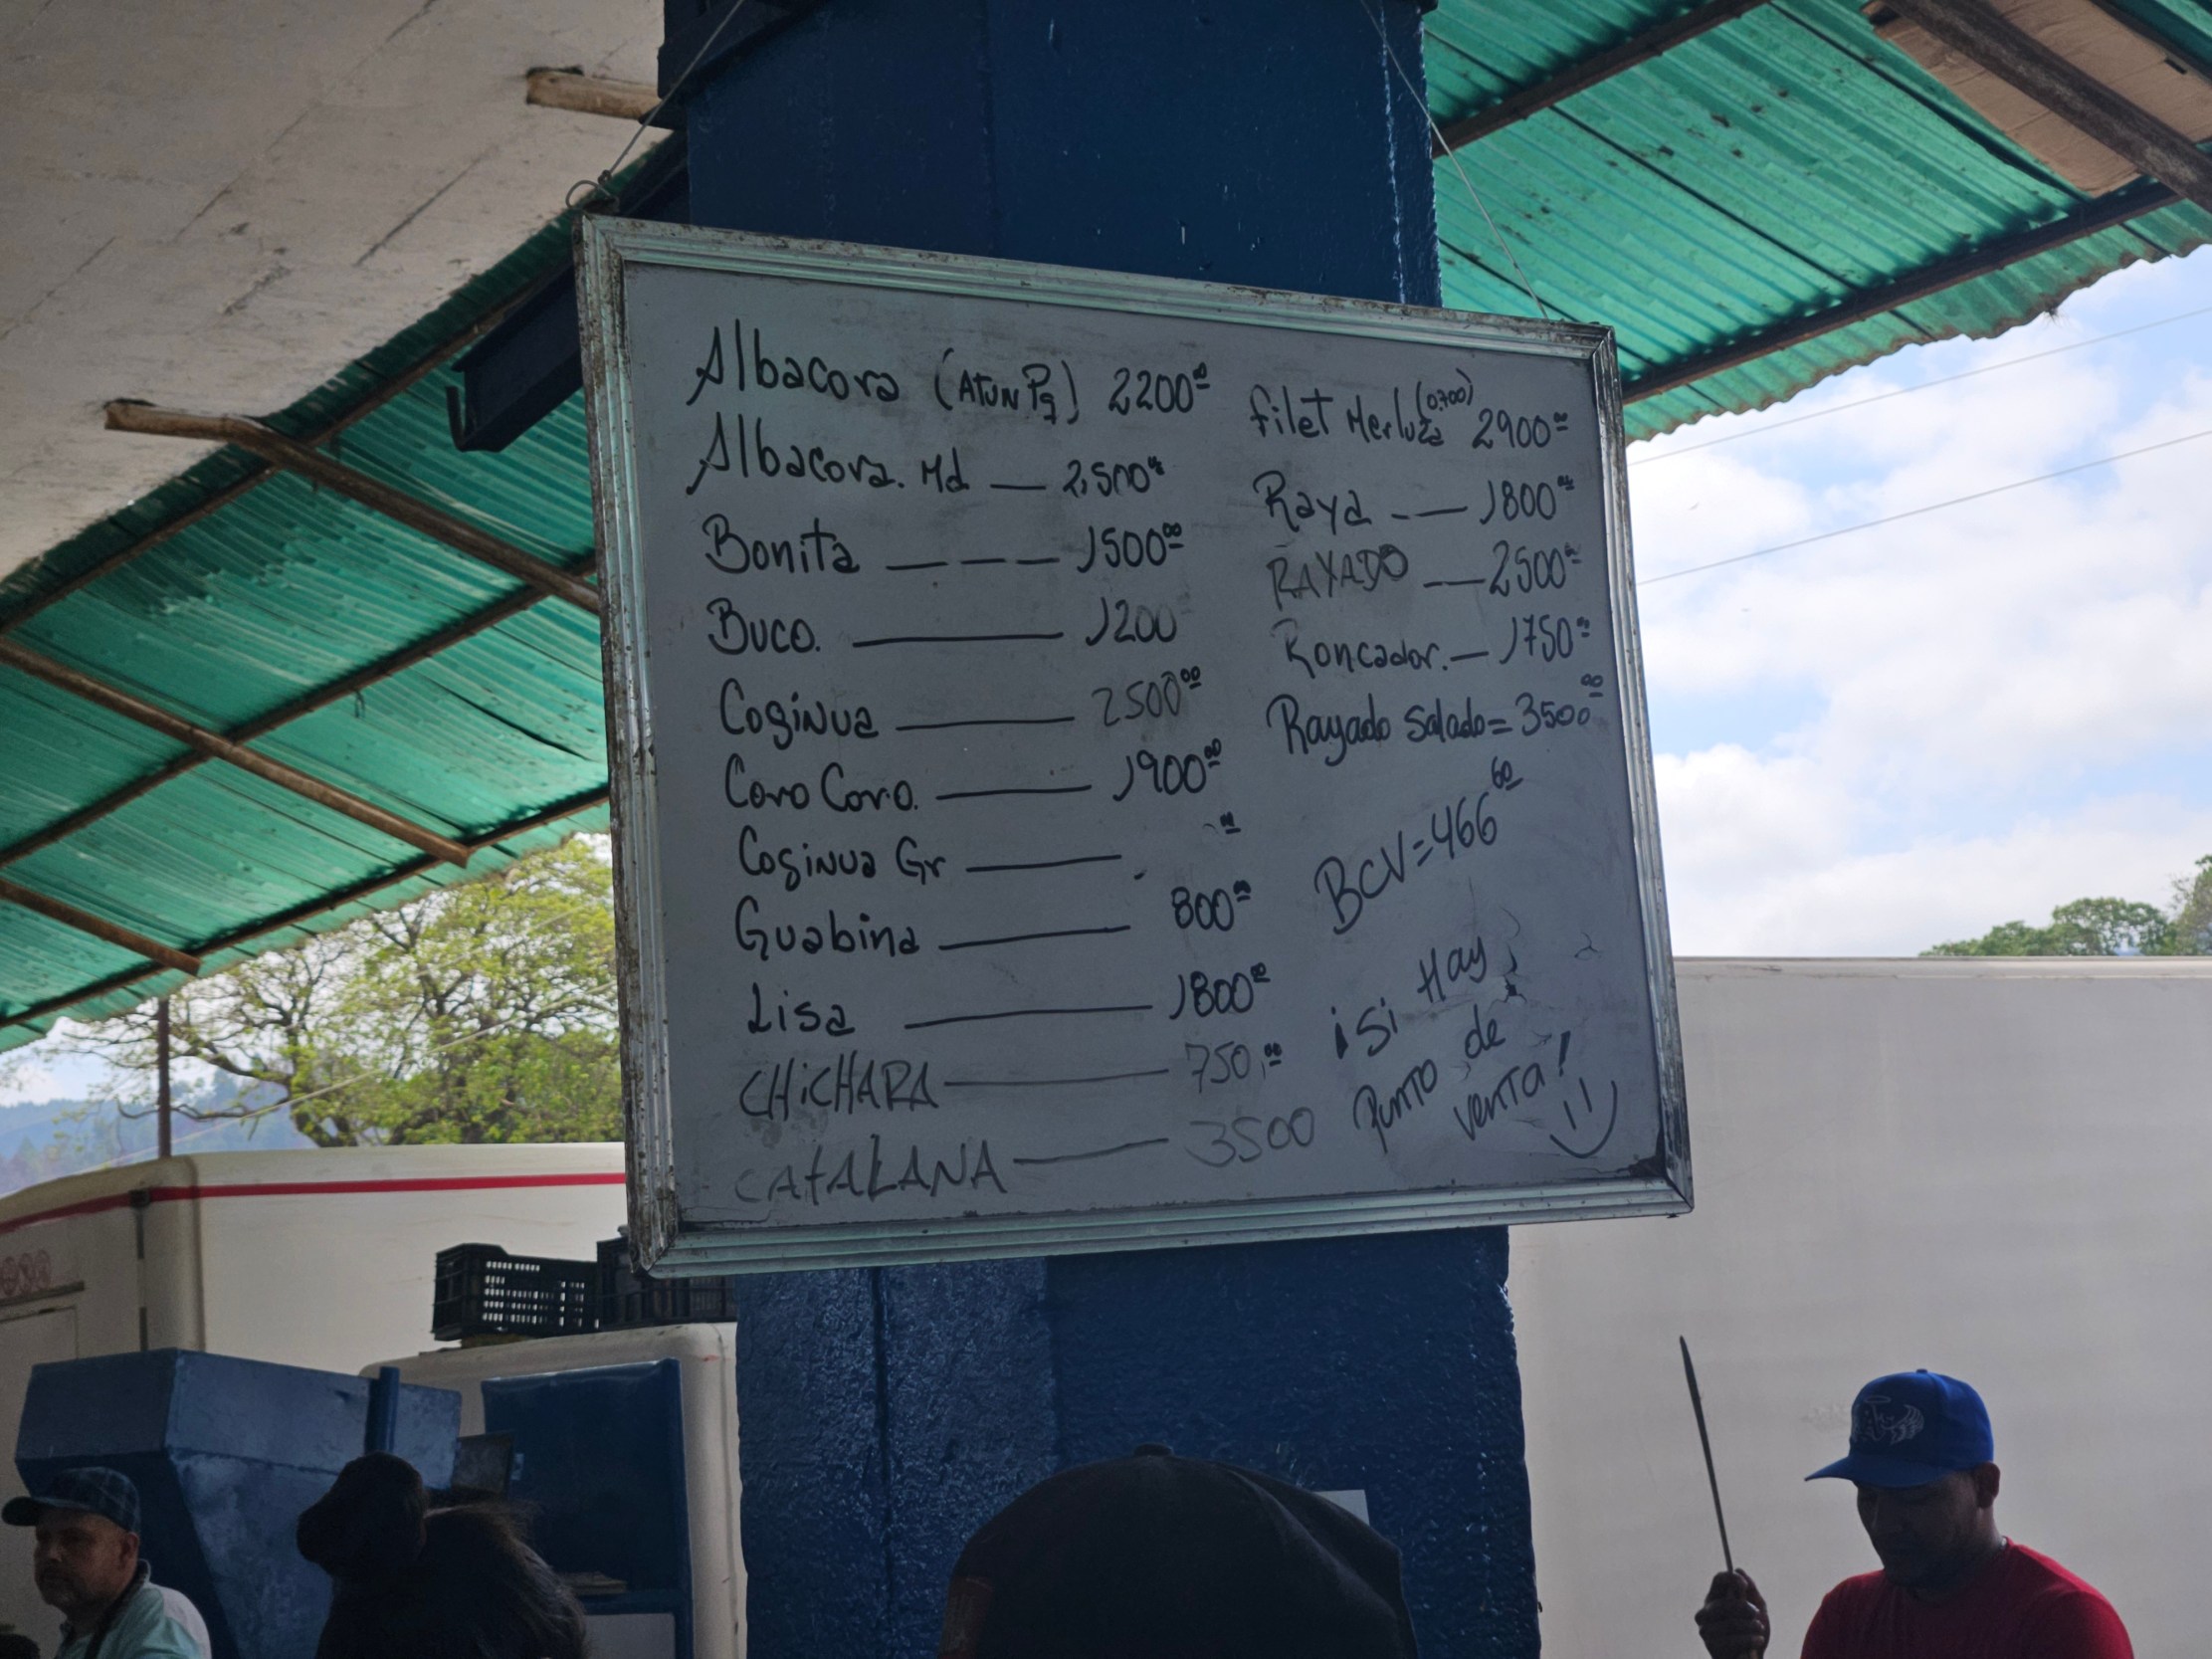 Albacora (ATUN Pq) 2200⁰⁰
Albacora. Md — 2,500⁰⁰
Bonita _ _ _ _ 1500⁰⁰
Buco. ____ 1200
Coginua ____ 2500⁰⁰
Coro Coro. ____ 1900⁰⁰
Coginua Gr ____
Guabina ____ 800⁰⁰
Lisa ____ 1800⁰⁰
CHiCHARA ____ 750,⁰⁰
CATALANA ____ 3500
filet Merluza (0,700) 2900⁰⁰
Raya _ __ 1800⁰⁰
RAYADO __ 2500⁰⁰
Roncador. _ 1750⁰⁰
Rayado Salado = 3500⁰⁰
BCV = 466⁶⁰
¡Si Hay
Punto de
venta!